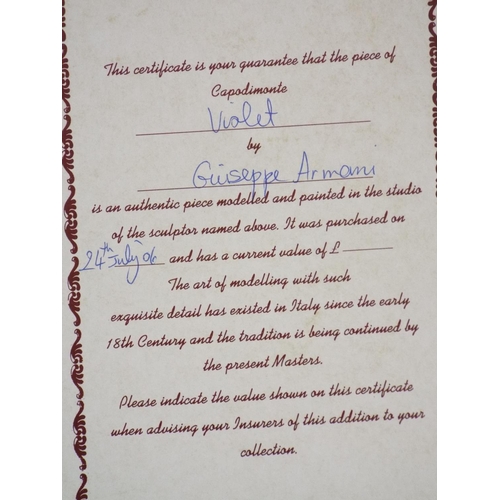 This certificate is your guarantee that the piece of
Capodimonte
Violet
by
Giuseppe Armani
is an authentic piece modelled and painted in the studio
of the sculptor named above. It was purchased on
24th July '06 and has a current value of £
The art of modelling with such
exquisite detail has existed in Italy since the early
18th Century and the tradition is being continued by
the present Masters.
Please indicate the value shown on this certificate
when advising your Insurers of this addition to your
collection.